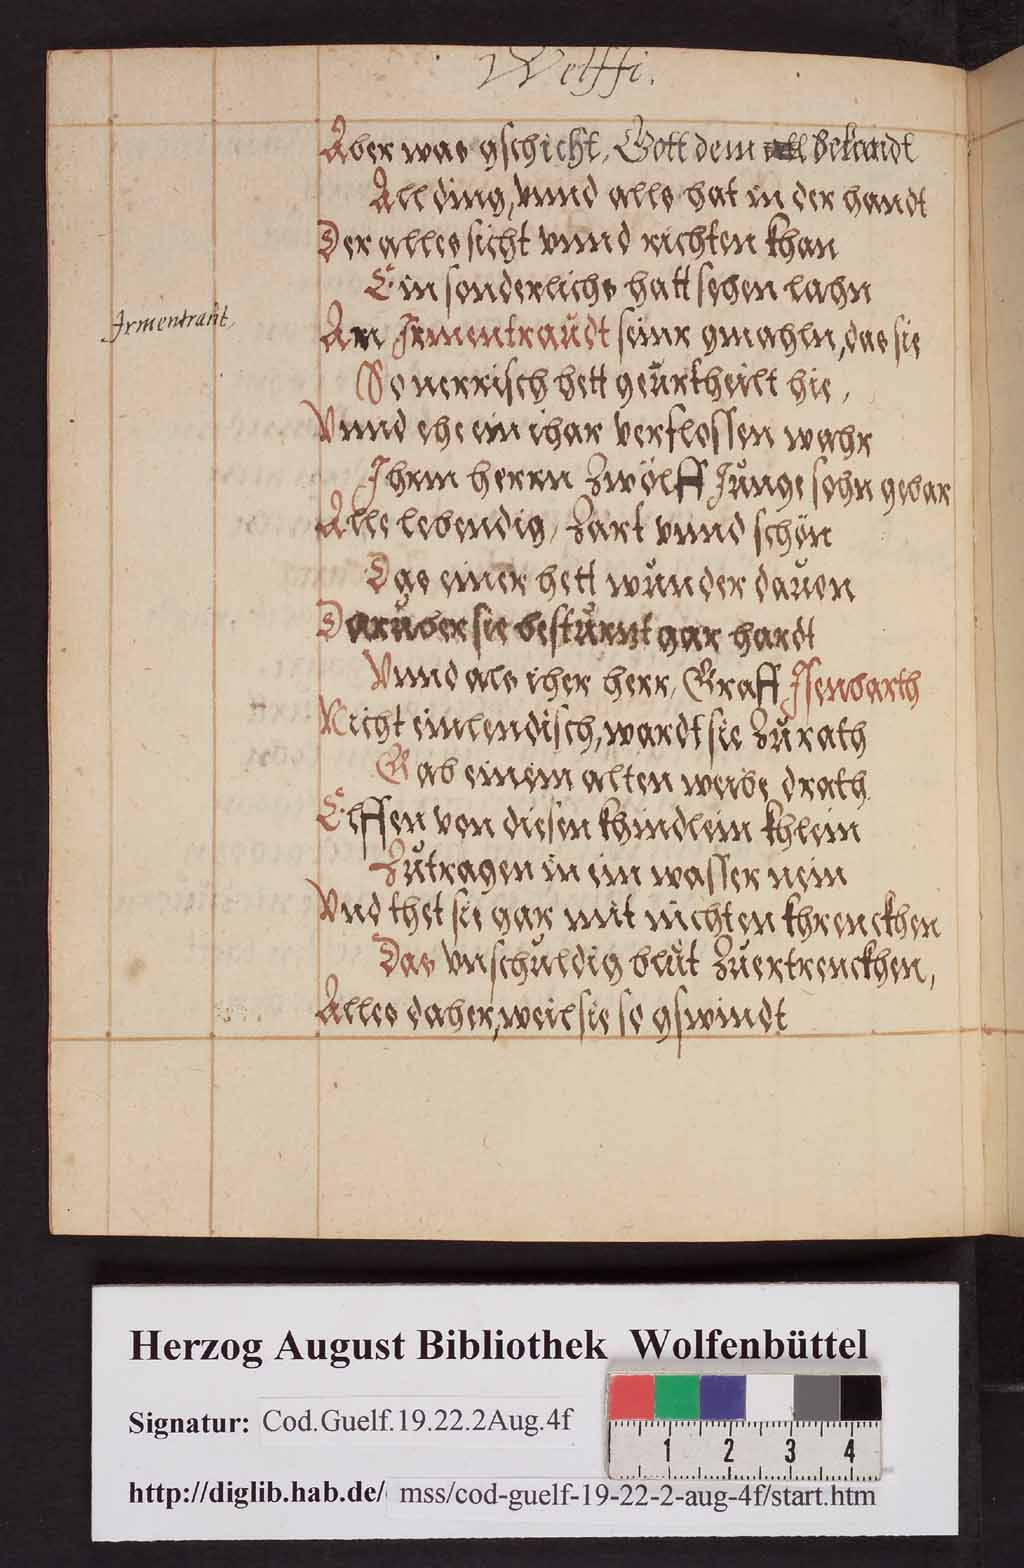 Welffi.
Aber was gschicht, Gott dem all bekandt
All ding, vnnd alls hat in der handt
Der alles sicht vnnd richten khan
Ein sonderlichs hatt sehen lahn
Irmentraut,
An Irmentraůdt seinr gmahln, das sie
So nerrisch hett geůrtheilt hie,
Vnnd ehe ein ihar verflossen wahr
Ihrm herrn Zwölff Jůnge sohn gebar
Alle lebendig, Zart vnnd schön
Das einer hett wůnder dauon
Darůber sie bestůrtzt gar hardt
Vnnd als iher herr, Graff Jsenbarth
Nicht einlendisch, wardt sie Zů rath
Gab einem alten weibe drath
Elffen von diesen khindlein khlein
Zůtragen in ein wasser nein
Vnd thet sie gar mit nichten khrenckhen
Das vnschůldig blůt Zůertrenckhen,
Alles daher, weil sie so gswindt
Herzog August Bibliothek Wolfenbüttel
Signatur: Cod.Guelf.19.22.2Aug.4f
1 2 3 4
http://diglib.hab.de/ mss/cod-guelf-19-22-2-aug-4f/start.htm